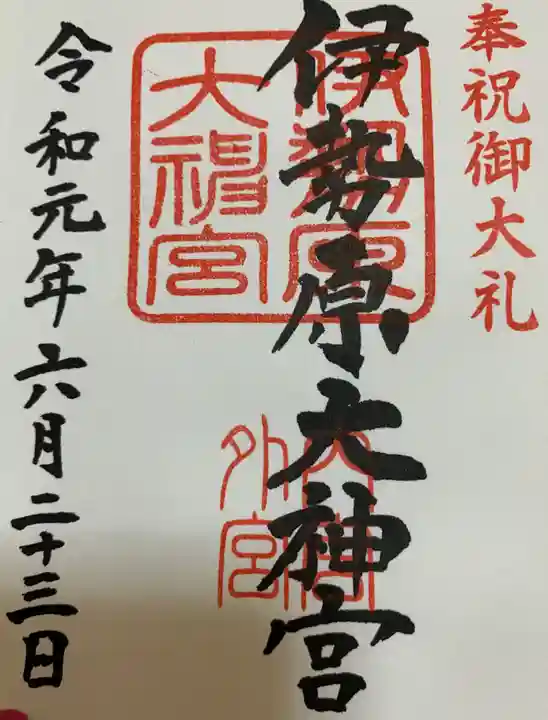 奉祝御大礼
伊勢原大神宮
伊勢原
大神宮
内宮
外宮
令和元年六月二十三日